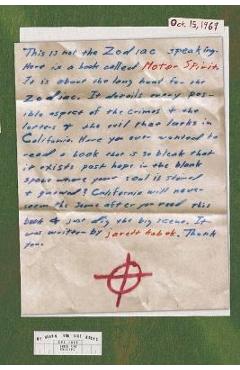 Oct. 15, 1969
This is not the Zodiac speaking.
Here is a book called Motor Spirit.
It is about the long hunt for the
Zodiac. It details every pos-
sible aspect of the crimes & the
letters & the evil that lurks in
California. Have you ever wanted to
read a book that is so bleak that
it exists post-hope in the blank
space where your soul is stoned
&
? California will never
seem the same after you read this
book & just dig the big scene. It
was written by Jarett Kobek. Thank
you.